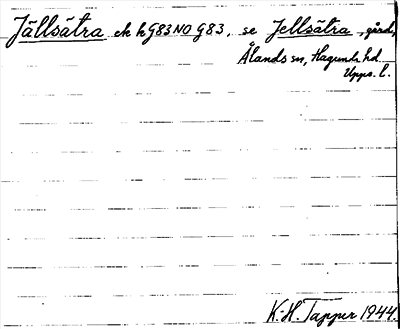 Jällsätra ek k G83 NO G83, se Jellsätra, gård,
Ålands sn, Hagunda hd
Upps. l.
K.-H. Tapper 1944.